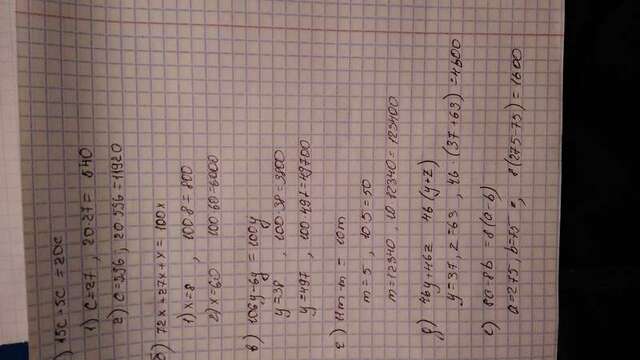 ) 15c + 5c = 20c
1) c=27 , 20·27 = 540
2) c=596 ; 20·596 = 11920
б) 72x + 27x + x = 100x
1) x=8 , 100·8 = 800
2) x=60 100·60=6000
в) 106y-6y = 100y
y=38 , 100·38=3800
y=497 , 100·497=49700
г) 11m-m = 10m
m=5 , 10·5=50
m=12340 , 10·12340=123400
д) 46y+46z 46(y+z)
y=37, z=63 , 46·(37+63)=4600
е) 8a-8b = 8(a-b)
a=275, b=75 , 8(275-75)=1600